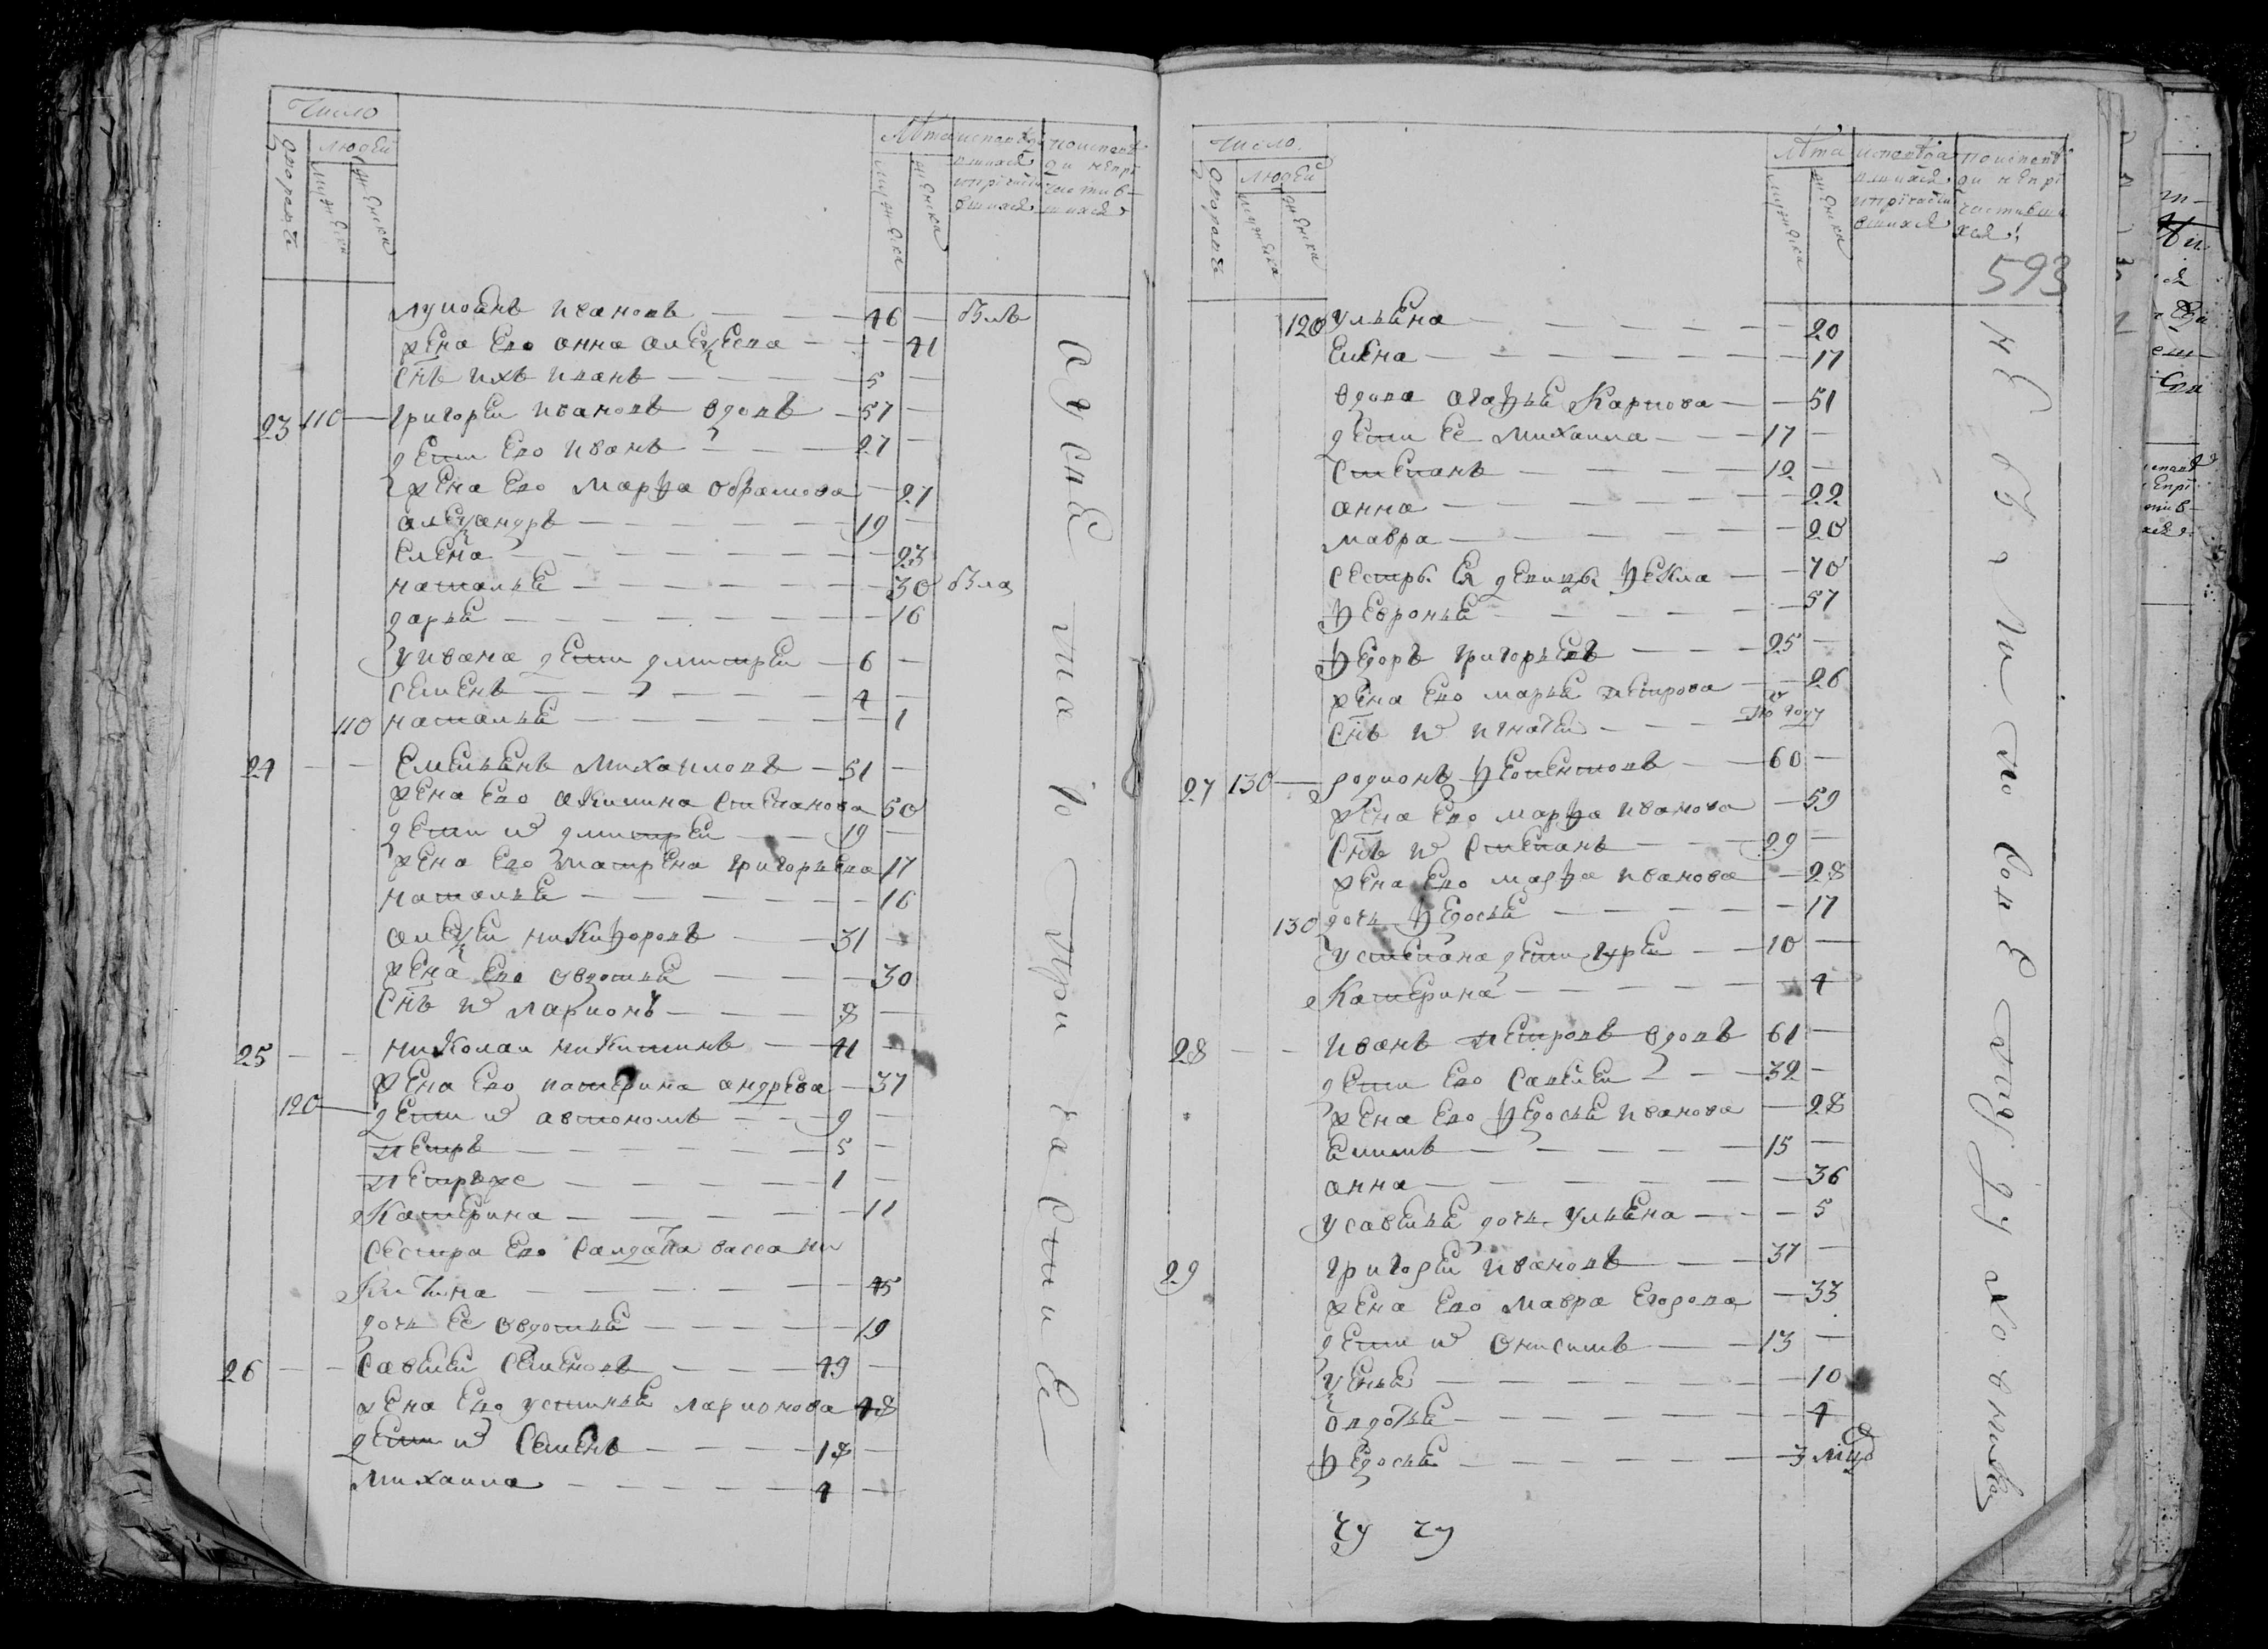 Число
дворовъ
людей
мужеска
женска
Лѣта
мужеска
женска
исповѣда
вшихся
и причасти
вшихся
по исповѣ
ди непри
частив
шихся
лукоянъ ивановъ 46 былъ
жена ево анна алеѯеева 41
снъ ихъ иванъ 5
23 110 григореи ивановъ вдовъ 57
дети ево иванъ 27
жена ево марѳа обрамова 27
алеѯандръ 19
елена 23
наталья 30 была
дарья 16
у ивана дети дмитреи 6
семенъ 4
110 наталья 1
24 емельянъ михаиловъ 51
жена ево акилина степанова 50
дети их дмитреи 19
жена ево матрена григорьева 17
наталья 16
алеѯеи никиѳоровъ 31
жена ево овдотья 30
снъ их ларионъ 8
25 николаи никитинъ 41
жена ево катерина андрева 37
120 дети их автономъ 9
петръ 5
петръ же 1
катерина 11
сестра ево салдатка васса ни
китина 45
дочь ее овдотья 19
26 савелеи семеновъ 49
жена ево устинья ларионова 48
дети их семенъ 18
михаила 4
Число
дворовъ
людей
мужеска
женска
Лѣта
мужеска
женска
исповѣда
вшихся
и причасти
вшихся
по исповѣ
ди непри
частивши
хся
593
120 ульяна 20
елена 17
вдова агаѳья карпова 51
дети ее михаила 17
степанъ 12
анна 22
мавра 20
сестры ея девицы ѳекла 70
ѳевронья 57
ѳедоръ григорьевъ 25
жена ево марья петрова 26
снъ их игнатеи по году
27 130 родионъ 60
жена ево марѳа иванова 59
снъ их степанъ 29
жена ево марѳа иванова 28
130 дочь ѳедосья 17
у степана дети гуреи 10
катерина 4
28 иванъ петровъ вдовъ 61
дети ево савелеи 32
жена ево ѳедосья иванова 28
анна 36
у савелья дочь ульяна 5
29 григореи ивановъ 37
жена ево мавра егорова 33
дети их онисимъ 13
ѯенья 10
овдотья 4
ѳедосья 3 мцъ